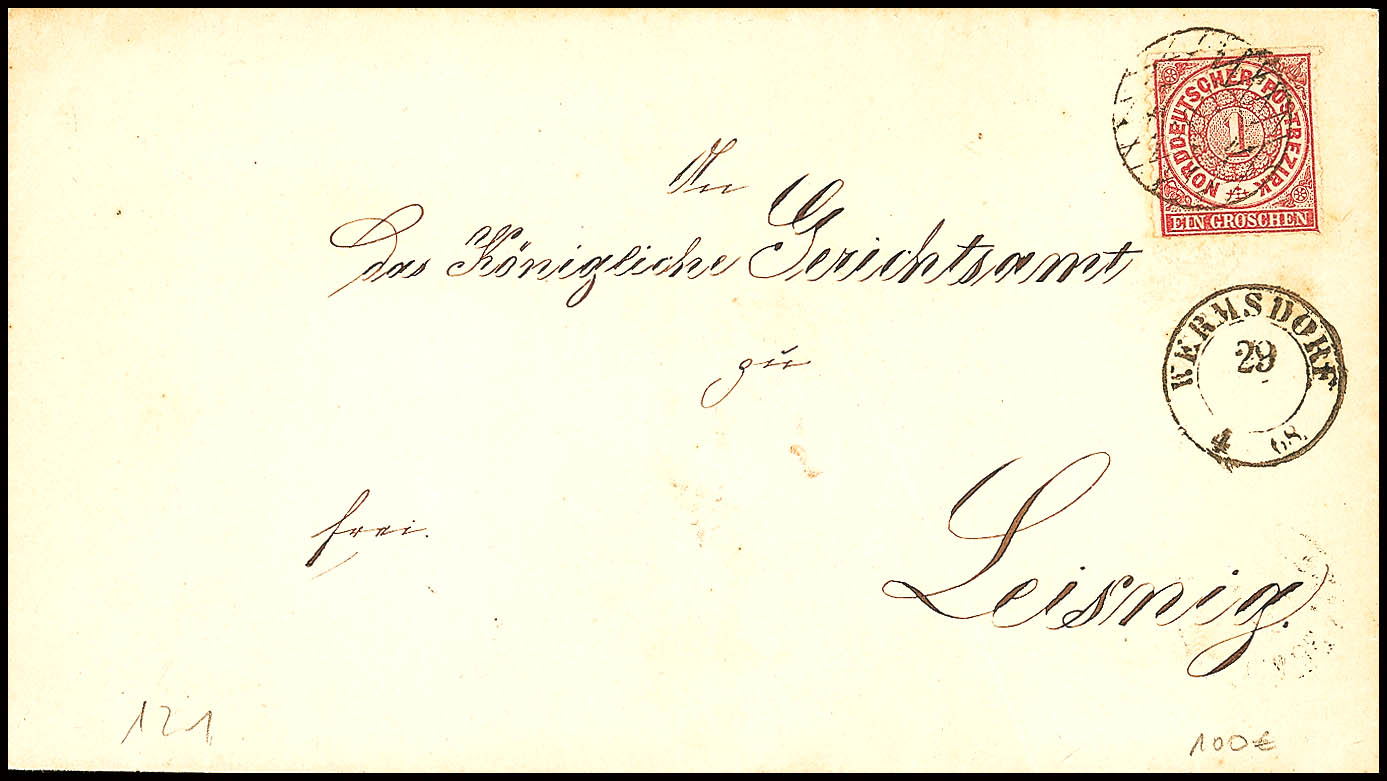 NORDDEUTSCHER POSTBEZIRK
1
EIN GROSCHEN
An
das Königliche Gerichtsamt
zu
WERMSDORF
29
4 68.
frei.
Leisnig.
121
100€